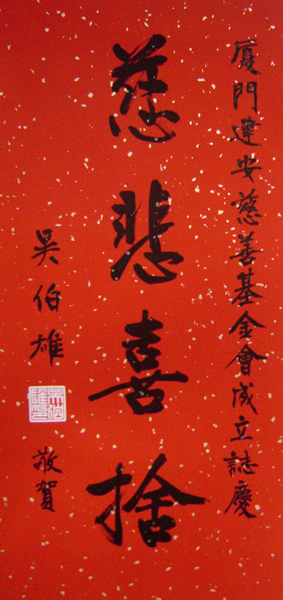 廈門建安慈善基金會成立誌慶
慈悲喜捨
吳伯雄
敬賀